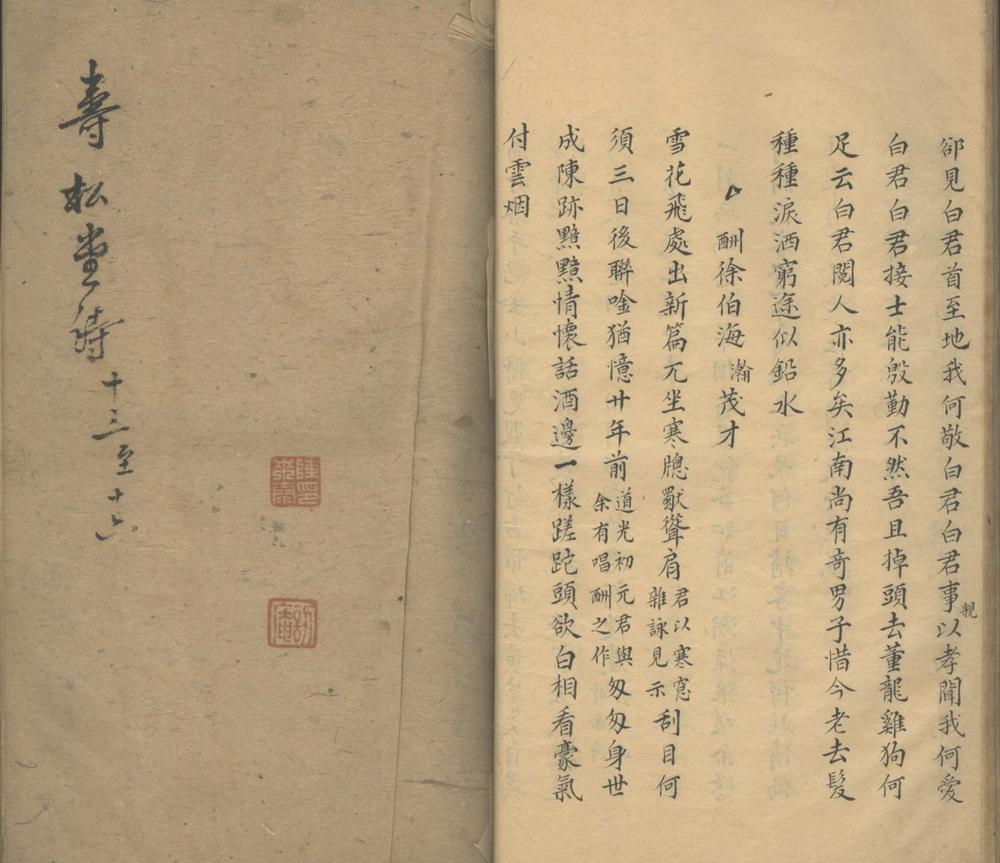 卻見白君首至地我何敬白君白君事親以孝聞我何愛
白君白君接士能殷勤不然吾且掉頭去董龍雞狗何
足云白君閱人亦多矣江南尚有奇男子惜今老去髮
種種淚洒窮途似鉛水
酬徐伯海瀚茂才
雪花飛處出新篇兀坐寒牕獸聳肩君以寒窓雜詠見示刮目何
須三日後聯唫猶憶廿年前道光初元君與余有唱酬之作匆匆身世
成陳跡黯黯情懷話酒邊一樣蹉跎頭欲白相看豪氣
付雲烟
壽松堂詩十三至十六